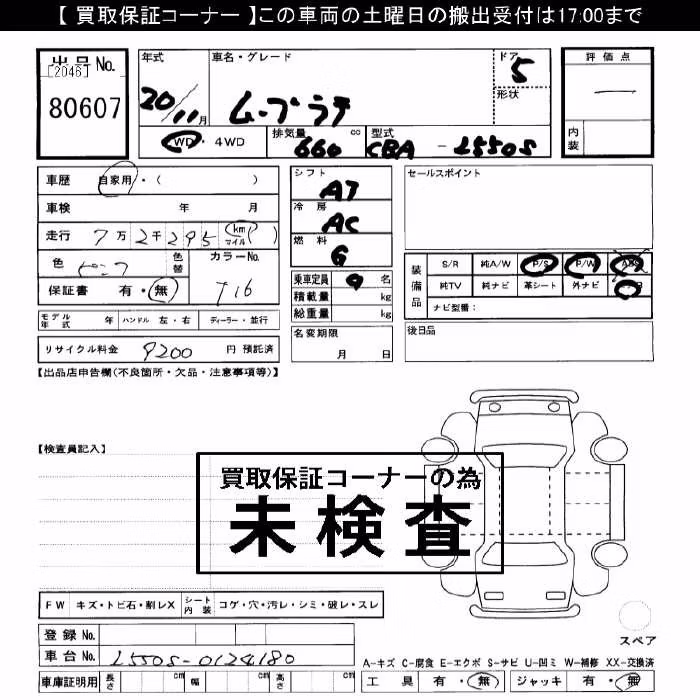 【 買取保証コーナー 】この車両の土曜日の搬出受付は17:00まで
出品No.
[2046]
80607
年式
20/11月
車名・グレード
ムーブラテ
ドア
5
形状
評価点
―
内装
2WD・4WD
排気量
660 cc
型式
CBA - L550S
車歴 自家用・( )
車検 年 月
走行 7万2千295 (km マイル)
色 ピンク
色替
カラーNo.
T16
保証書 有・無
シフト
AT
冷房
AC
燃料
G
乗車定員 名
積載量 kg
総重量 kg
セールスポイント
装備品
S/R 純A/W P/S P/W ABS
純TV 純ナビ 革シート 外ナビ
ナビ型番:
モデル年式 年 ハンドル 左・右 ディーラー・並行
リサイクル料金 9200 円 預託済
名変期限
月 日
後日品
【出品店申告欄(不良箇所・欠品・注意事項等)】
【検査員記入】
買取保証コーナーの為
未検査
FW キズ・トビ石・割レX シート内装 コゲ・穴・汚レ・シミ・破レ・スレ
スペア
登録No.
車台No. L550S-0124180
車庫証明用 長さ cm 幅 cm 高さ cm
A-キズ C-腐食 E-エクボ S-サビ U-凹ミ W-補修 XX-交換済
工具 有・無 ジャッキ 有・無